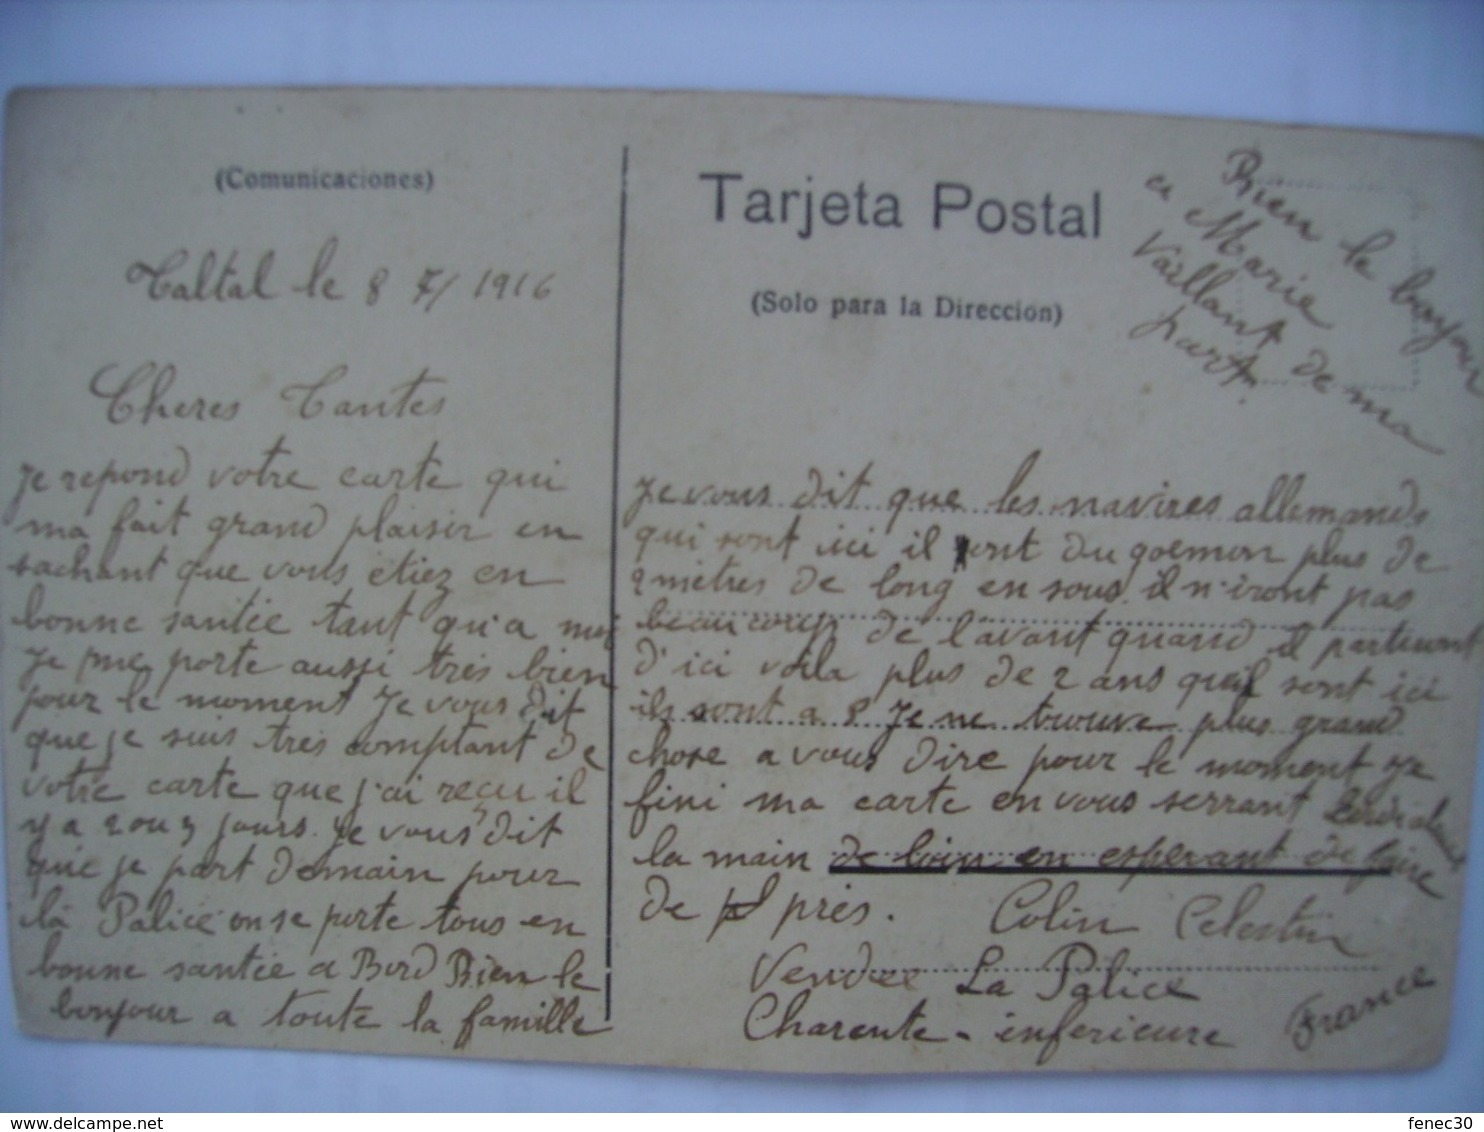 (Comunicaciones)
Taltal le 8 7/ 1916
Cheres Tantes
Je repond votre carte qui
ma fait grand plaisir en
sachant que vous étiez en
bonne santée tant qu'a moi
Je me porte aussi très bien
pour le moment Je vous dit
que je suis très comptant de
votre carte que j'ai reçu il
y a 2 ou 3 jours. Je vous dit
que je part demain pour
la Palice on se porte tous en
bonne santée a Bord Bien le
bonjour a toute la famille
Tarjeta Postal
(Solo para la Direccion)
Bien le bonjour
a Marie
Vaillant de ma
part.
Je vous dit que les navires allemands
qui sont ici il ont du goemon plus de
2 mètres de long en sous. il n'iront pas
beaucoup de l'avant quand il parteront
d'ici voila plus de 2 ans qu'il sont ici
ils sont a 8 Je ne trouve plus grand
chose a vous dire pour le moment je
fini ma carte en vous serrant
la main de loin en esperant de faire
de près.
Colin Celestin
Vendee La Palice
Charente - inferieure
France
delcampe.net
fenec30